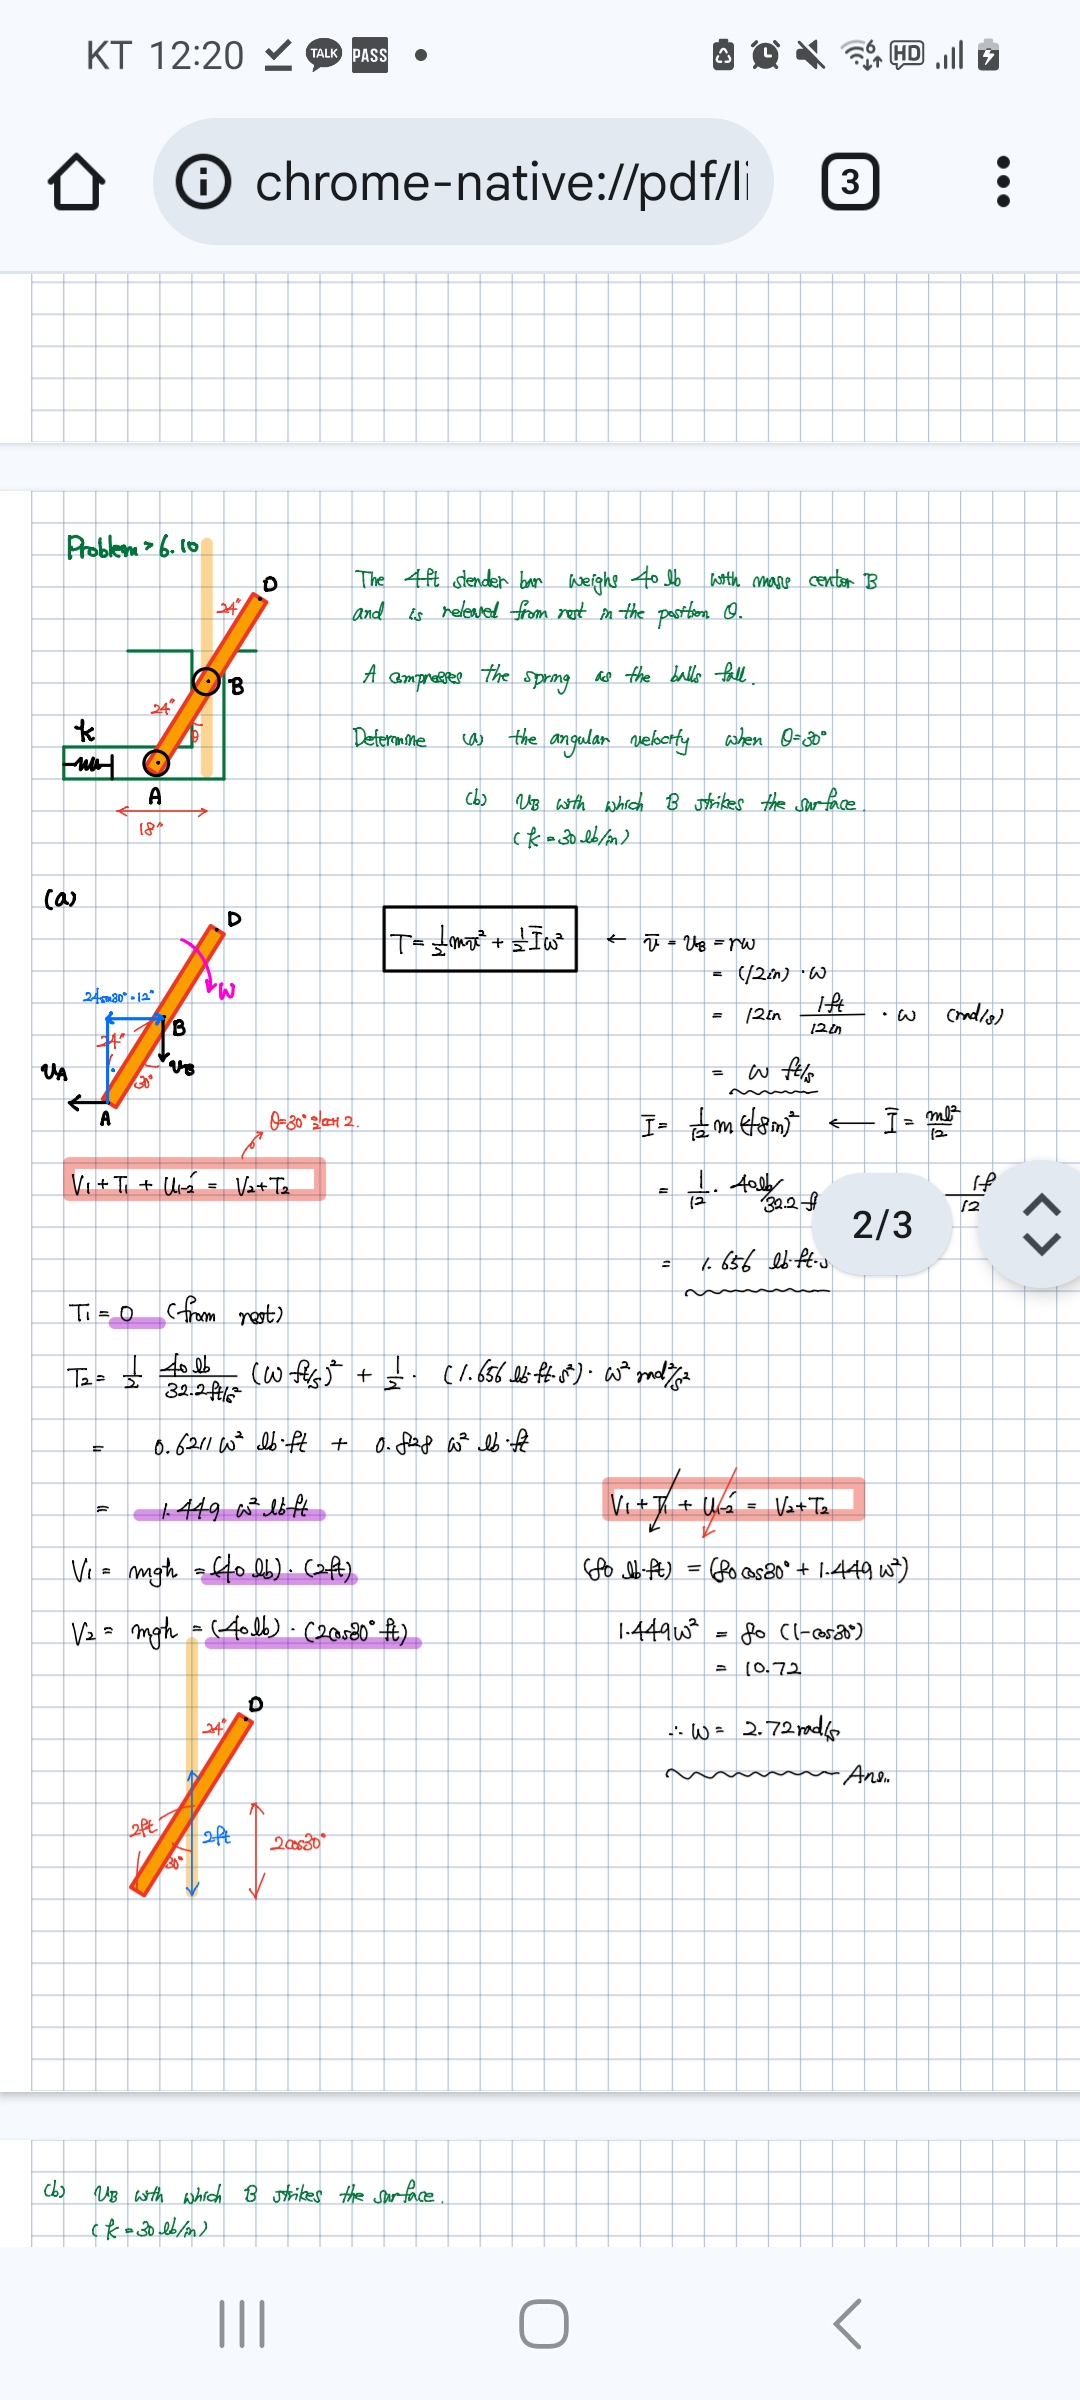 KT 12:20 TALK PASS HD
chrome-native://pdf/li 3
Problem > 6.10
The 4ft slender bar weighs 40 lb with mass center B
and is released from rest in the position θ.
A compresses the spring as the balls fall.
Determine (a) the angular velocity when θ=30°
(b) υB with which B strikes the surface.
(k = 30 lb/in)
D
24"
B
24"
θ
k
A
18"
(a)
D
ω
24sin30° = 12"
B
24"
υB
υA
30°
A
T = ½mῡ² + ½Īω² ← ῡ = υB = rω
= (12in) · ω
= 12in 1ft/12in · ω (rad/s)
= ω ft/s
Ī = 1/12 m (48in)² ← Ī = ml²/12
= 1/12 · 40lb/32.2 f
1f
12
= 1.656 lb·ft·s
2/3
θ=30° 일때 2.
V1 + T1 + U1-2' = V2 + T2
T1 = 0 (from rest)
T2 = ½ 40 lb/32.2ft/s² (ω ft/s)² + ½ · (1.656 lb·ft·s²) · ω² rad²/s²
= 0.6211 ω² lb·ft + 0.828 ω² lb·ft
= 1.449 ω² lb·ft
V1 = mgh = (40 lb) · (2ft)
V2 = mgh = (40lb) · (2cos30° ft)
V1 + T1 + U1-2' = V2 + T2
(80 lb·ft) = (80 cos30° + 1.449 ω²)
1.449ω² = 80 (1-cos30°)
= 10.72
∴ ω = 2.72 rad/s
Ans..
D
24"
2ft
2ft
30°
2cos30°
(b) υB with which B strikes the surface.
(k = 30 lb/in)